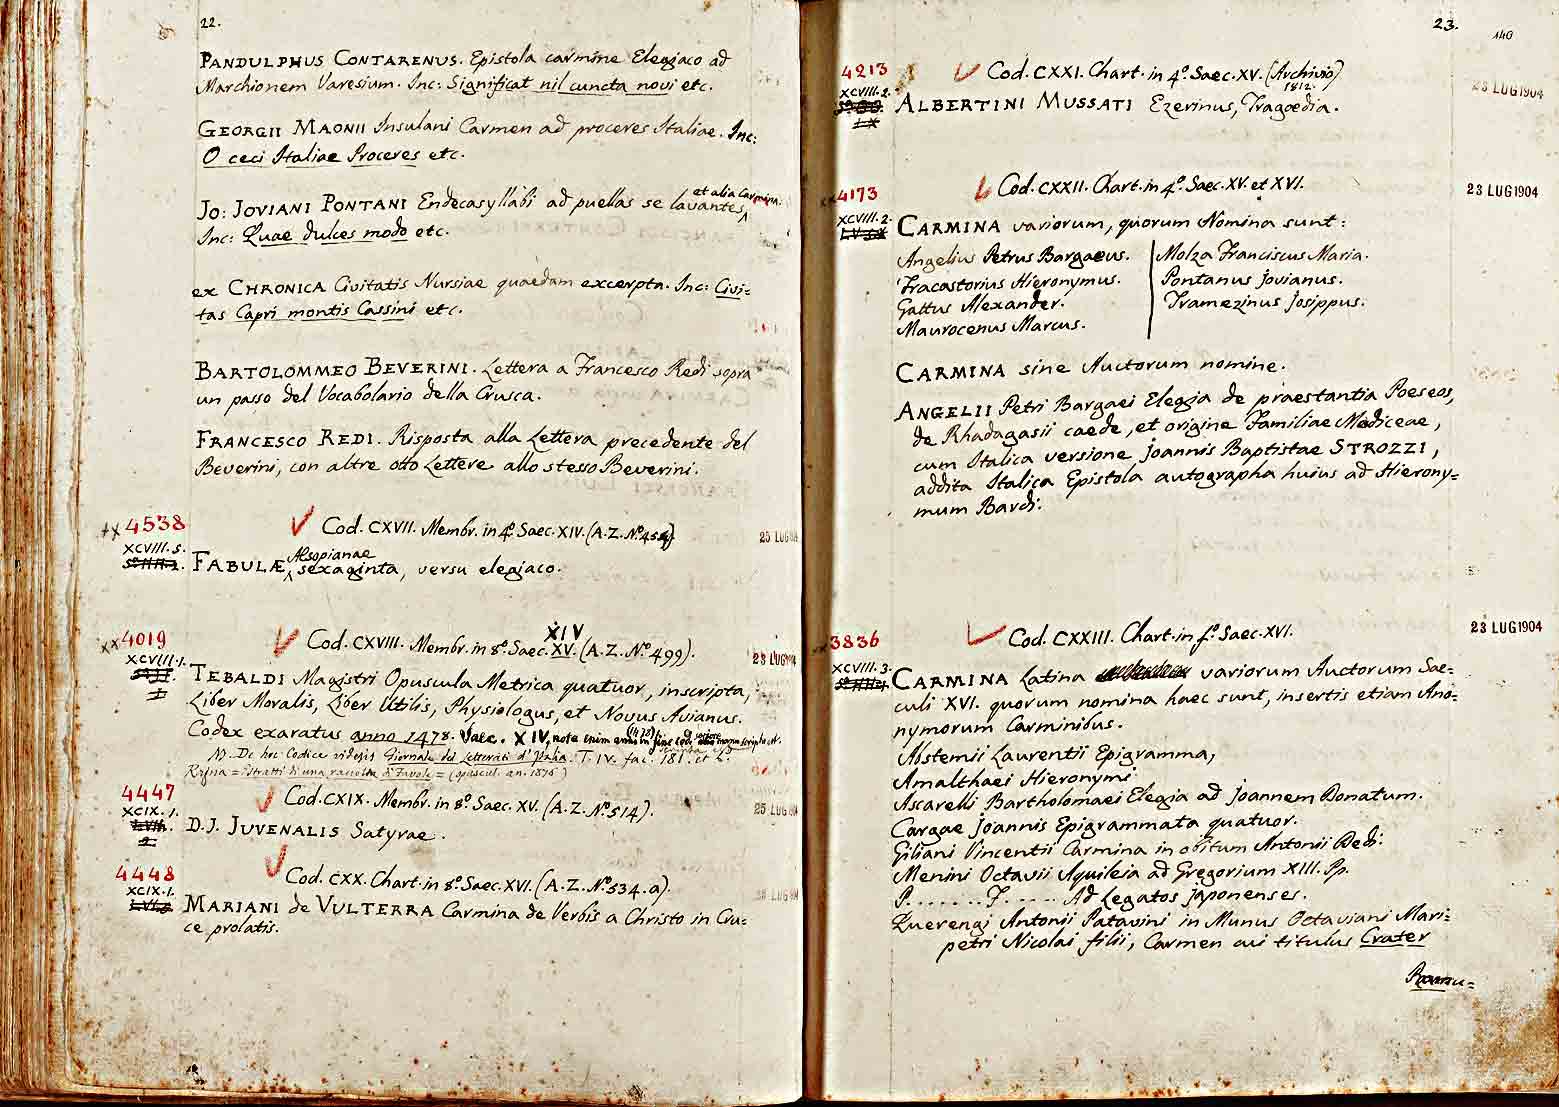 22.
PANDULPHUS CONTARENUS. Epistola carmine Elegiaco ad
Marchionem Varesium. Inc: Significat nil cuncta novi etc.
GEORGII MAONII Insulani Carmen ad proceres Italiae. Inc:
O ceci Italiae Proceres etc.
et alia Carmina.
JO: JOVIANI PONTANI Endecasyllabi ad puellas se lavantes
Inc: Quae dulces modo etc.
ex CHRONICA Civitatis Nursiae quaedam excerpta. Inc: Civi=
tas Capri montis Cassini etc.
BARTOLOMMEO BEVERINI. Lettera a Francesco Redi sopra
un passo del Vocabolario della Crusca.
FRANCESCO REDI. Risposta alla Lettera precedente del
Beverini, con altre otto Lettere allo stesso Beverini.
xx 4538
Cod. CXVII. Membr. in 4º. Saec. XIV. (A. Z. Nº.
25 LUG
XCVIII. 5.
Aesopianae
FABULÆ sexaginta, versu elegiaco.
xx 4019
XIV
Cod. CXVIII. Membr. in 8º. Saec. XV. (A. Z. Nº. 499).
23 LUG
XCVIII. 1.
TEBALDI Magistri Opuscula Metrica quatuor, inscripta,
Liber Moralis, Liber Utilis, Physiologus, et Novus Avianus.
Codex exaratus anno 1478. Saec. XIV, nota enim anni (1478) in fine Cod.
N. De hoc Codice videsis Giornale dei Letterati d'Italia. T. IV. fac. 181. et
= Estratti d'una raccolta di Favole = (opuscul. an. 1876)
4447
Cod. CXIX. Membr. in 8º. Saec. XV. (A. Z. Nº. 514).
25 LUG
XCIX. 1.
2.
D. J. JUVENALIS Satyrae.
4448
Cod. CXX. Chart. in 8º. Saec. XVI. (A. Z. Nº. 534. a).
LUG
XCIX. 1.
MARIANI de VULTERRA Carmina de Verbis a Christo in Cru=
ce prolatis.
23.
140
4213
Cod. CXXI. Chart. in 4º. Saec. XV. (Archivio)
1812.
23 LUG 1904
XCVIII. 2.
LX
ALBERTINI MUSSATI Ezerinus, Tragoedia.
4173
Cod. CXXII. Chart. in 4º. Saec. XV. et XVI.
23 LUG 1904
XCVIII. 2.
CARMINA variorum, quorum Nomina sunt:
Angelius Petrus Bargaeus.
Fracastorius Hieronymus.
Gattus Alexander.
Maurocenus Marcus.
Molza Franciscus Maria.
Pontanus Jovianus.
Tramezinus Josippus.
CARMINA sine Auctorum nomine.
ANGELII Petri Bargaei Elegia de praestantia Poeseos,
de Rhadagasii caede, et origine Familiae Mediceae,
cum Italica versione Joannis Baptistae STROZZI,
addita Italica Epistola autographa huius ad Hierony=
mum Bardi.
3836
Cod. CXXIII. Chart. in fº. Saec. XVI.
23 LUG 1904
XCVIII. 3.
CARMINA Latina variorum Auctorum Sae=
culi XVI. quorum nomina haec sunt, insertis etiam Ano=
nymorum Carminibus.
Abstemii Laurentii Epigramma,
Amalthaei Hieronymi
Ascarelli Bartholomaei Elegia ad Joannem Donatum.
Cargae Joannis Epigrammata quatuor.
Giliani Vincentii Carmina in obitum Antonii Dedi.
Menini Octavii Aquileia ad Gregorium XIII. Pp.
P. . . . . . . F. . . . . Ad Legatos japonenses.
Querengi Antonii Patavini in Munus Octaviani Mari=
petri Nicolai filii, Carmen cui titulus Crater